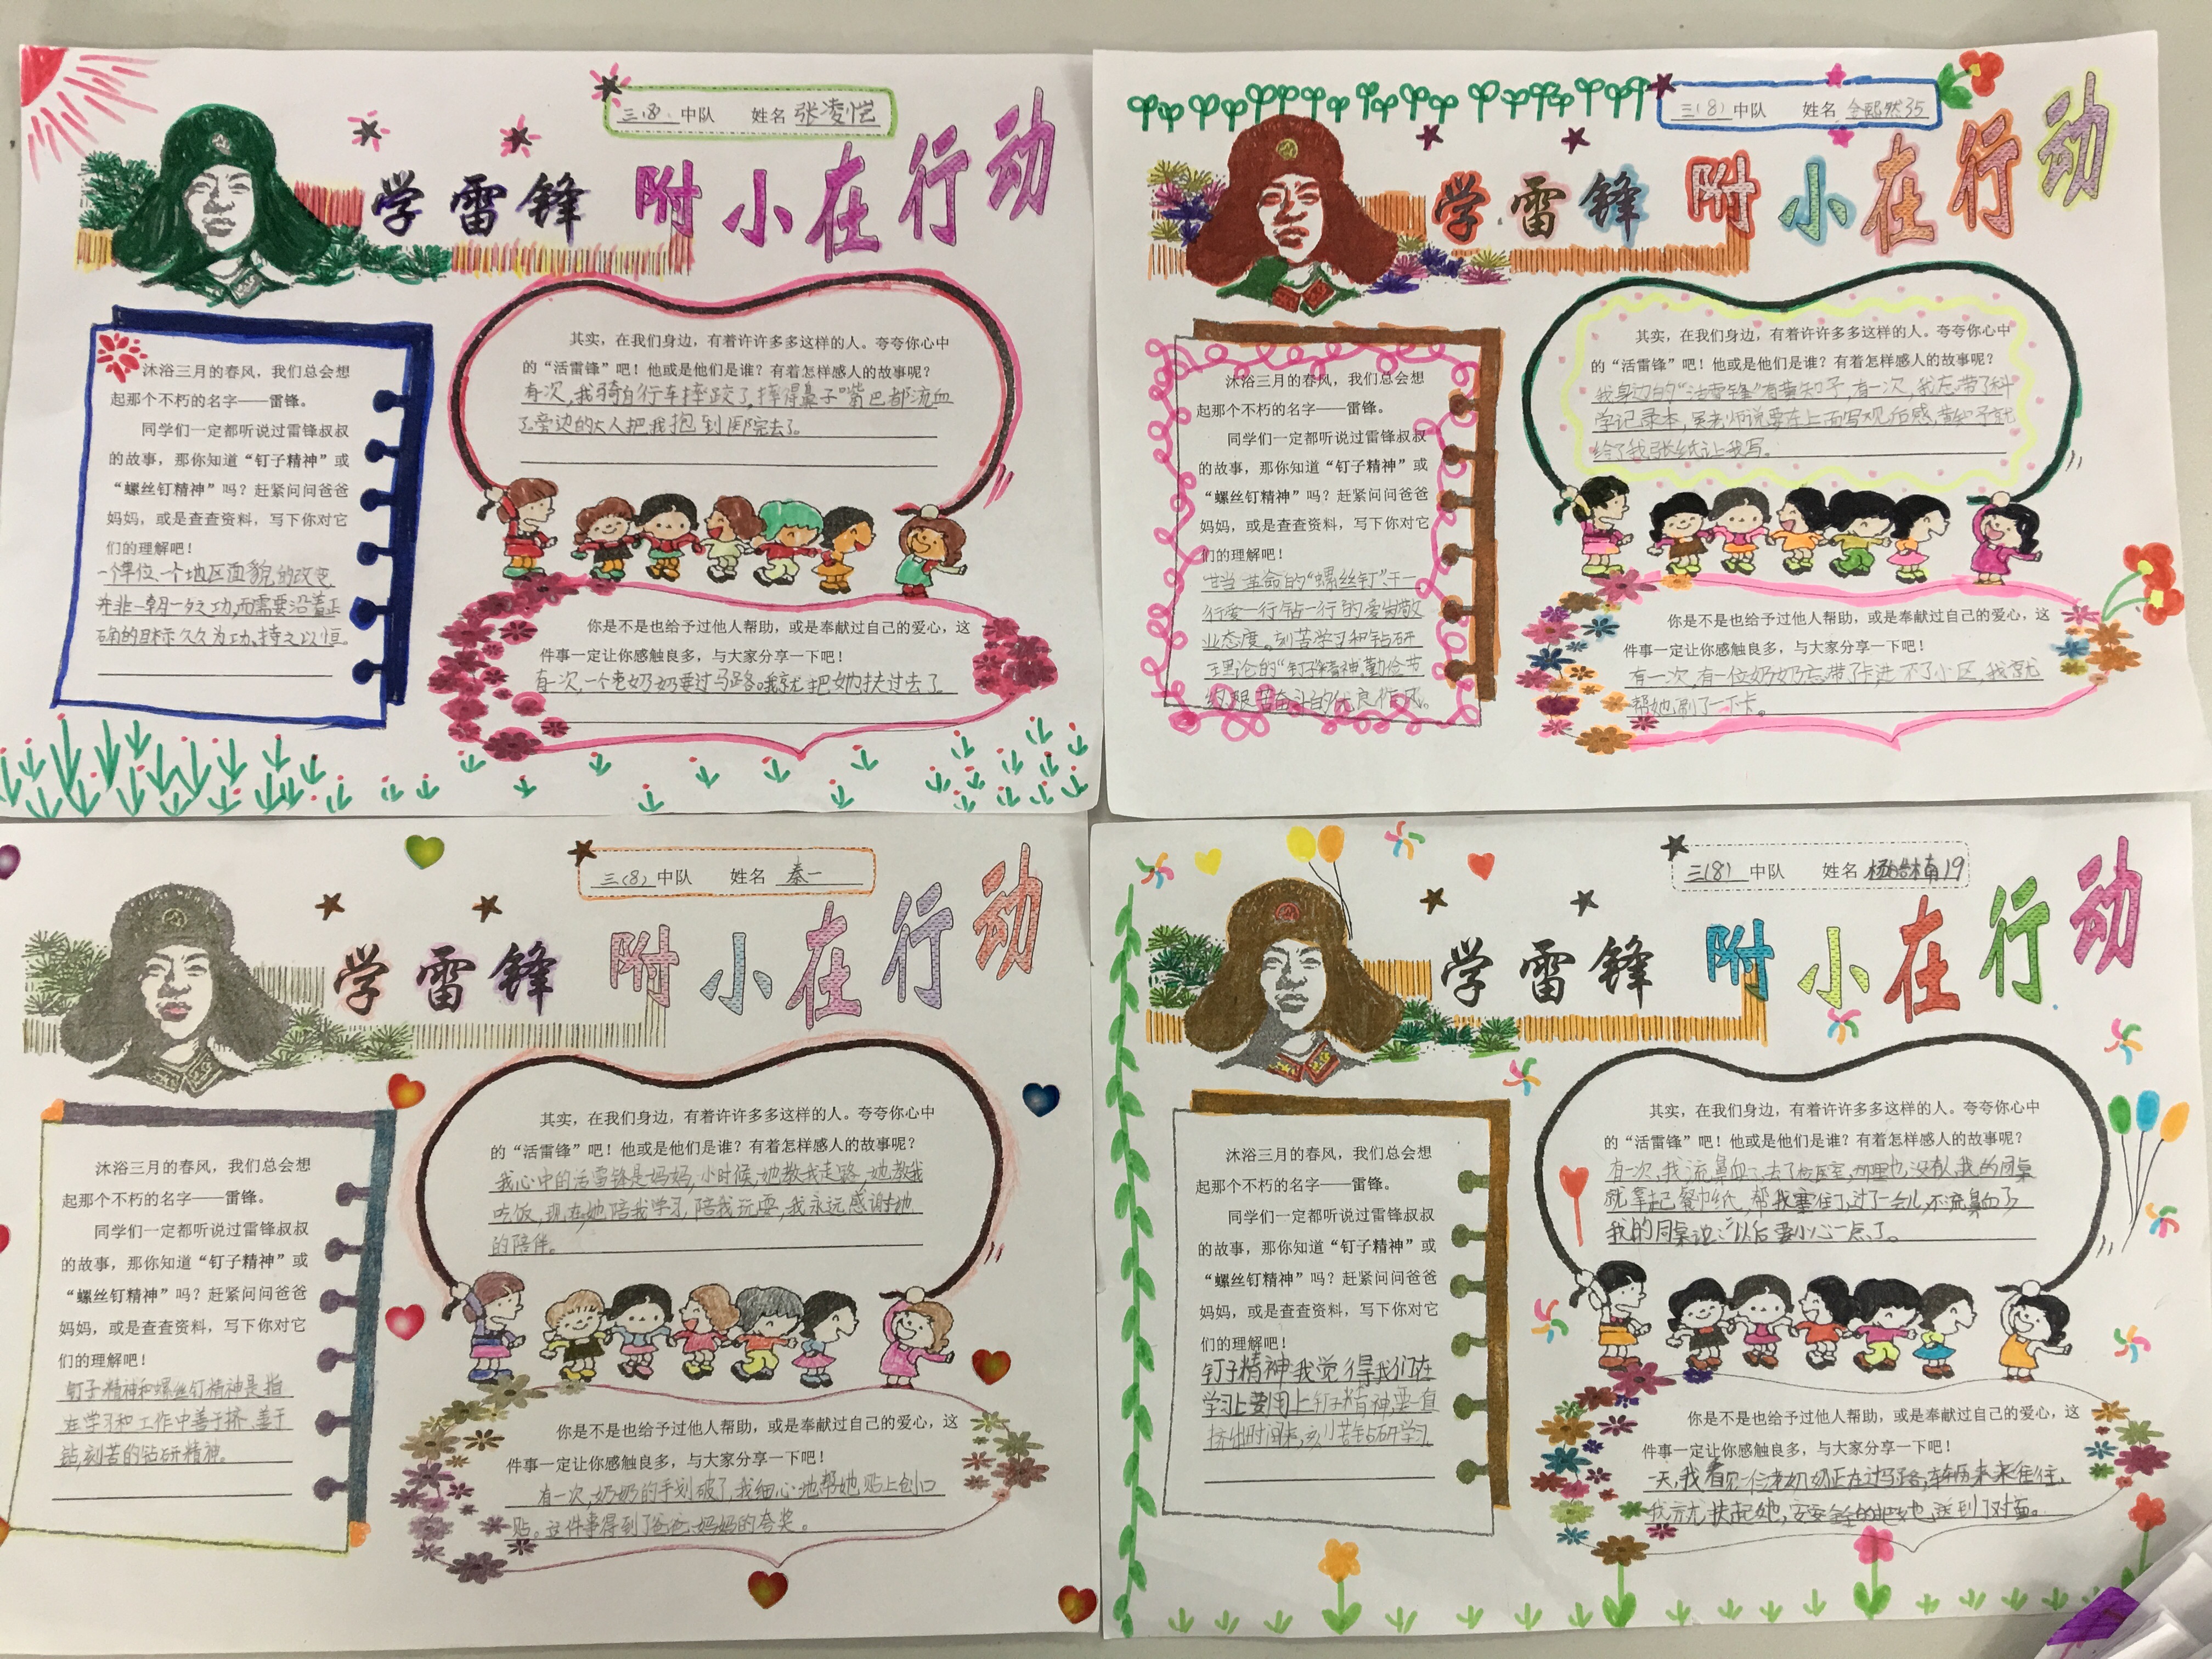 三(8)中队 姓名 张凌恺
学雷锋 附小在行动
沐浴三月的春风，我们总会想
起那个不朽的名字——雷锋。
同学们一定都听说过雷锋叔叔
的故事，那你知道“钉子精神”或
“螺丝钉精神”吗？赶紧问问爸爸
妈妈，或是查查资料，写下你对它
们的理解吧！
一个单位、一个地区面貌的改变
并非一朝一夕之功,而需要沿着正
确的目标久久为功、持之以恒.
其实，在我们身边，有着许许多多这样的人。夸夸你心中
的“活雷锋”吧！他或是他们是谁？有着怎样感人的故事呢？
有次,我骑自行车摔跤了,摔得鼻子嘴巴都流血
了.旁边的大人把我抱到医院去了。
你是不是也给予过他人帮助，或是奉献过自己的爱心，这
件事一定让你感触良多，与大家分享一下吧！
有一次,一个老奶奶要过马路。我就把她扶过去了.
三(8)中队 姓名 熙然35
学雷锋 附小在行动
沐浴三月的春风，我们总会想
起那个不朽的名字——雷锋。
同学们一定都听说过雷锋叔叔
的故事，那你知道“钉子精神”或
“螺丝钉精神”吗？赶紧问问爸爸
妈妈，或是查查资料，写下你对它
们的理解吧！
甘当革命的“螺丝钉”.干一
行爱一行钻一行的爱岗敬
业态度。刻苦学习和钻研
理论的“钉子精神”.勤俭节
约艰苦奋斗的优良作风。
其实，在我们身边，有着许许多多这样的人。夸夸你心中
的“活雷锋”吧！他或是他们是谁？有着怎样感人的故事呢？
我身边的“活雷锋”有黄知予,有一次,我忘带了科
学记录本,吴老师说要在上面写观后感,黄知予就
给了我张纸让我写。
你是不是也给予过他人帮助，或是奉献过自己的爱心，这
件事一定让你感触良多，与大家分享一下吧！
有一次,有一位奶奶忘带了卡进不了小区,我就
帮她刷了一下卡。
三(8)中队 姓名 秦一
学雷锋 附小在行动
沐浴三月的春风，我们总会想
起那个不朽的名字——雷锋。
同学们一定都听说过雷锋叔叔
的故事，那你知道“钉子精神”或
“螺丝钉精神”吗？赶紧问问爸爸
妈妈，或是查查资料，写下你对它
们的理解吧！
钉子精神和螺丝钉精神是指
在学习和工作中善于挤、善于
钻,刻苦的钻研精神。
其实，在我们身边，有着许许多多这样的人。夸夸你心中
的“活雷锋”吧！他或是他们是谁？有着怎样感人的故事呢？
我心中的活雷锋是妈妈,小时候,她教我走路,她教我
吃饭,现在,她陪我学习,陪我玩耍,我永远感谢她
的陪伴。
你是不是也给予过他人帮助，或是奉献过自己的爱心，这
件事一定让你感触良多，与大家分享一下吧！
有一次,奶奶的手划破了,我细心地帮她贴上创口
贴。这件事得到了爸爸、妈妈的夸奖。
三(8)中队 姓名 杨皓楠19
学雷锋 附小在行动
沐浴三月的春风，我们总会想
起那个不朽的名字——雷锋。
同学们一定都听说过雷锋叔叔
的故事，那你知道“钉子精神”或
“螺丝钉精神”吗？赶紧问问爸爸
妈妈，或是查查资料，写下你对它
们的理解吧！
钉子精神我觉得我们在
学习上要用上钉子精神,要一直
挤出时间来,刻苦钻研学习.
其实，在我们身边，有着许许多多这样的人。夸夸你心中
的“活雷锋”吧！他或是他们是谁？有着怎样感人的故事呢？
有一次,我流鼻血了,去了医室,那里也没有人,我的同桌
就拿起餐巾纸,帮我塞住了,过了一会儿,不流鼻血了,
我的同桌说:“以后要小心一点了。
你是不是也给予过他人帮助，或是奉献过自己的爱心，这
件事一定让你感触良多，与大家分享一下吧！
一天,我看见一位老奶奶正在过马路,车辆来来往往,
我就扶起她,安安全全的把她送到了对面。